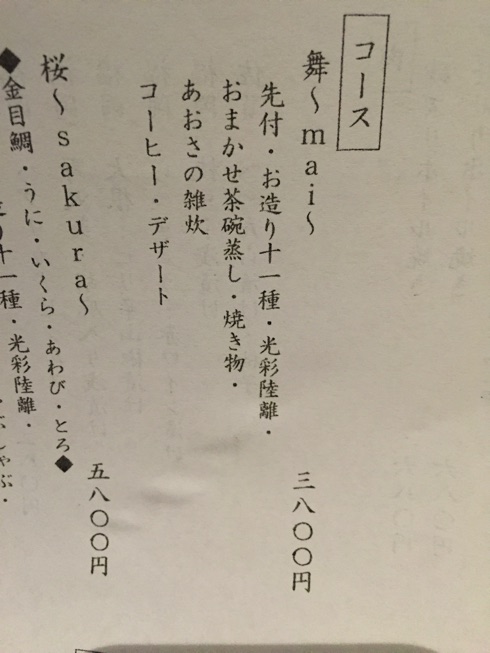 コース
舞～mai～
三八〇〇円
先付・お造り十一種・光彩陸離・
おまかせ茶碗蒸し・焼き物・
あおさの雑炊
コーヒー・デザート
桜～sakura～
五八〇〇円
◆金目鯛・うに・いくら・あわび・とろ◆
り十一種・光彩陸離・
しゃぶ・